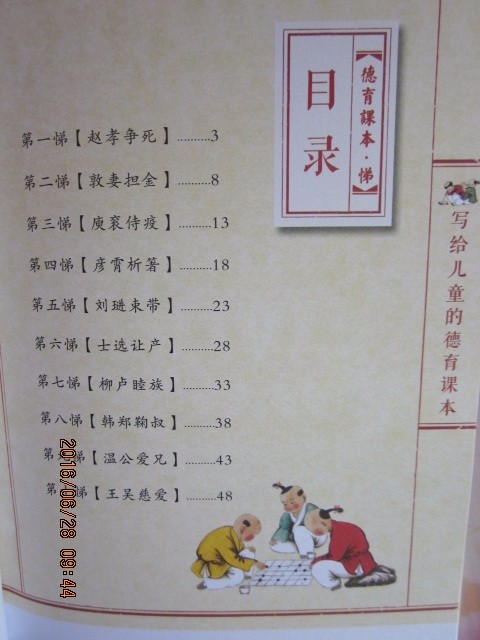 【德育課本·悌】
目录
第一悌【赵孝争死】..........3
第二悌【敦妻担金】..........8
第三悌【庾衮侍疫】..........13
第四悌【彦霄析箸】..........18
第五悌【刘琎束带】..........23
第六悌【士选让产】..........28
第七悌【柳卢睦族】..........33
第八悌【韩郑鞠叔】..........38
第 悌【温公爱兄】..........43
第 悌【王吴慈爱】..........48
写给儿童的德育课本
2016/06/28 09:44